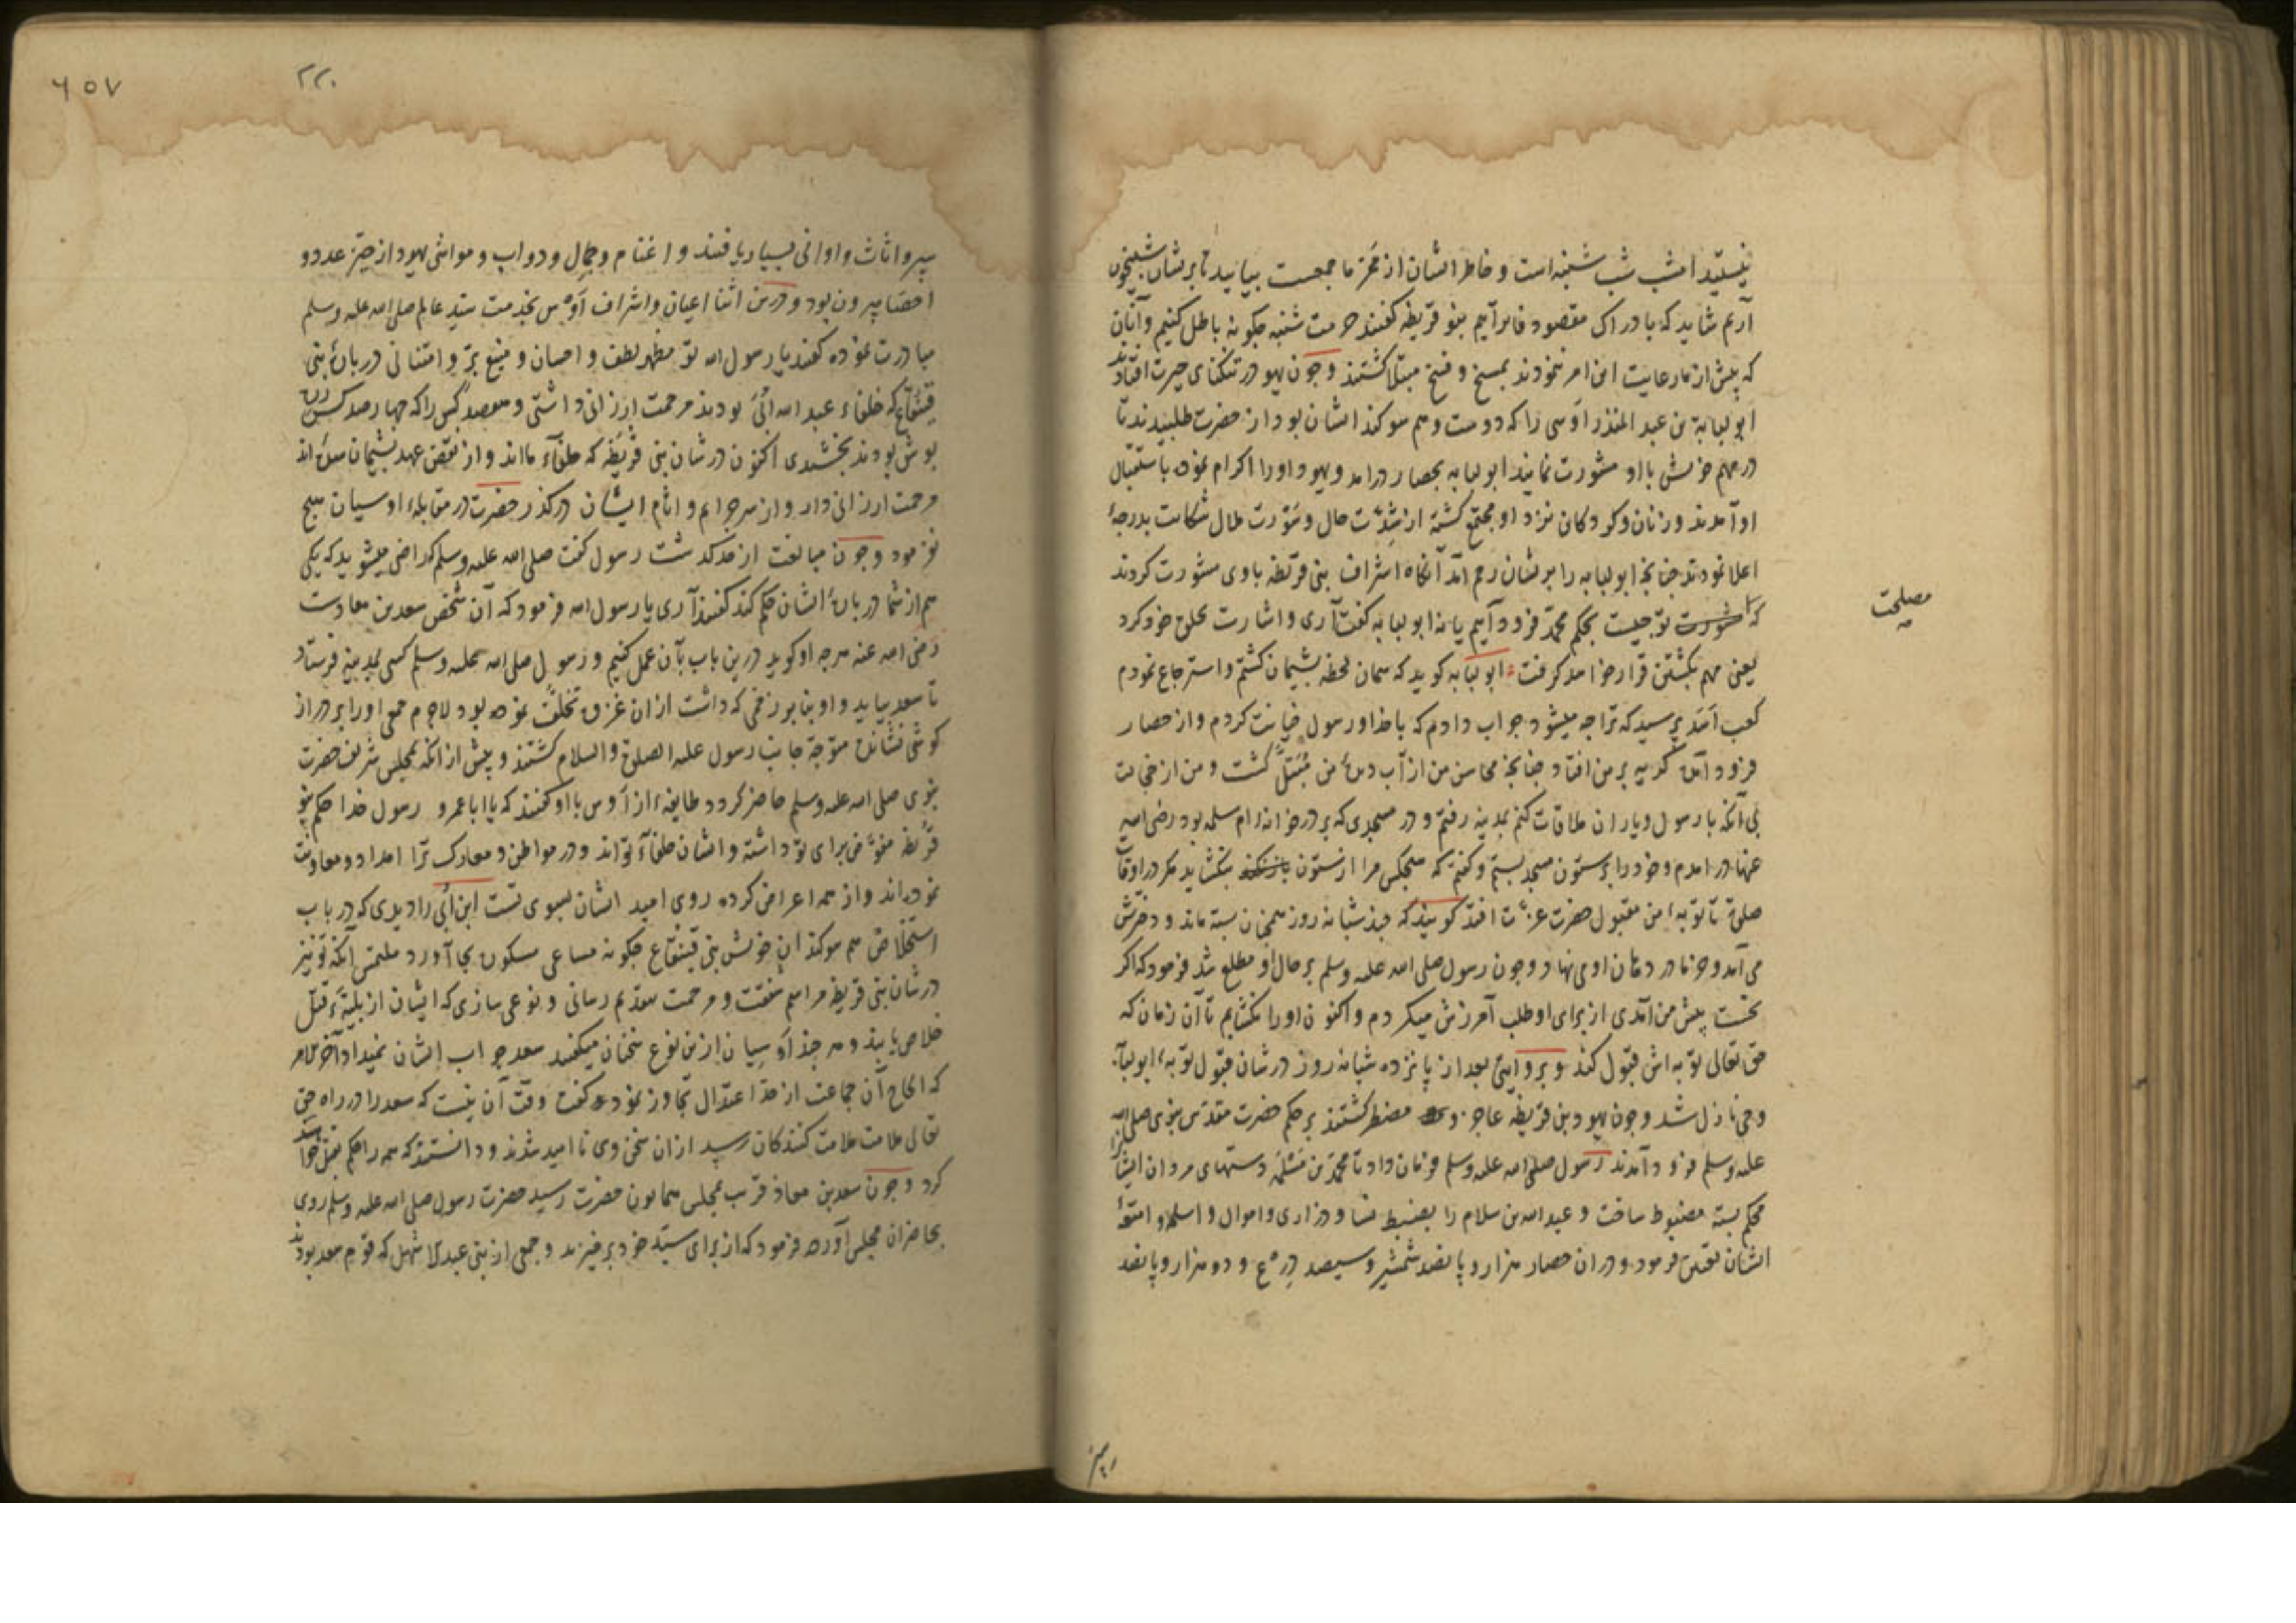 نیستید امشب شب شنبه است و خاطر ایشان از ممر ما جمعست بیایید تا بریشان شبیخون
آریم شاید که بادراک مقصود فایز آییم بنو قریظه گفتند حرمت شنبه چکونه باطل کنیم و آنان
که پیش از ما رعایت این امر ننمودند بمسخ و فسخ مبتلا کشتند و چون یهود در تنکنای حیرت افتادند
ابو لبابة بن عبد المنذر اوسی را که دوست و هم سوکند ایشان بود از حضرت طلبیدند تا
در مهم خویش با او مشورت نمایند ابو لبابه بحصار درامد و یهود او را اکرام نموده باستقبال
او آمدند و زنان و کودکان نزد او مجتمع کشته از شدت حال و سورت ملال شکایت بدرجهٔ
اعلا نمودند چنانچه ابو لبابه را بریشان رحم آمد آنکاه اشراف بنی قریظه با وی مشورت کردند
که مشورت تو چیست بحکم محمد فرود آییم یا نه ابو لبابه کفت آری و اشارت بحلق خود کرد
مصلحت
یعنی مهم بکشتن قرار خواهد کرفت ابو لبابه کوید که همان لحظه پشیمان کشتم و استرجاع نمودم
کعب اسد پرسید که ترا چه میشود جواب دادم که با خدا و رسول خیانت کردم و از حصار
فرود آمده کریه بر من افتاد چنانچه محاسن من از آب دیدهٔ من مبتل کشت و من از خجالت
بی آنکه با رسول و یاران ملاقات کنم بمدینه رفتم و در مسجدی که بر در خانهٔ ام سلمه بود رضی الله
عنها در امدم و خود را بر ستون مسجد بستم و کفتم که هیچکس مرا از ستون باز نکند نکشاید مکر در اوقات
صلوة تا توبهٔ من مقبول حضرت عزت افتد کویند که چند شبانه روز همچنان بسته ماند و دخترش
می آمد و خرما در دهان او می نهاد و چون رسول صلی الله علیه وسلم بر حال او مطلع شد فرمود که اکر
نخست پیش من آمدی از برای او طلب آمرزش میکردم و اکنون او را نکشایم تا آن زمان که
حق تعالی توبه اش قبول کند و بروایتی بعد از پانزده شبانه روز در شان قبول توبهٔ ابو لبابه
وحی نازل شد و چون یهود بن قریظه عاجز و مضطر کشتند بر حکم حضرت مقدس نبوی صلی الله
علیه وسلم فرود آمدند رسول صلی الله علیه وسلم فرمان داد تا محمد بن مسلمه دستهای مردان ایشانرا
محکم بسته مضبوط ساخت و عبد الله بن سلام را بضبط نسا و ذراری و اموال و اسلحه و امتعهٔ
ایشان تعیین فرمود و در ان حصار هزار و پانصد شمشیر و سیصد درع و دو هزار و پانصد
٢٢٠
٦٥٧
سپر و اثاث و اوانی بسیار یافتند و اغنام و جمال و دواب و مواشی یهود از حیز عدد و
احصا بیرون بود و درین اثنا اعیان و اشراف اوس بخدمت سید عالم صلی الله علیه وسلم
مبادرت نموده کفتند یا رسول الله تو مظهر لطف و احسان و منبع بر و امتنانی در بارهٔ بنی
قینقاع که حلفاء عبد الله ابی بودند مرحمت ارزانی داشتی و هفصد کس را که چهار صد کس زره
پوش بودند بخشیدی اکنون در شان بنی قریظه که حلفاء مااند و از نقض عهد پشیمان شده اند
مرحمت ارزانی دار و از سر جرایم و اثام ایشان درکذر حضرت در مقابلهٔ اوسیان هیچ
نفرمود و چون مبالغت از حد کذشت رسول کفت صلی الله علیه وسلم که راضی میشوید که یکی
هم از شما در بارهٔ ایشان حکم کند کفتند آری یا رسول الله فرمود که آن شخص سعد بن معادست
رضی الله عنه هر چه او کوید درین باب بآن عمل کنیم و رسول صلی الله علیه وسلم کسی بمدینه فرستاد
تا سعد بیاید و او بنا بر زخمی که داشت از ان غزوه تخلف نموده بود لاجرم جمعی او را بر دراز
کوشی نشانده متوجه جانب رسول علیه الصلوة والسلام کشتند و پیش از انکه بمجلس شریف حضرت
نبوی صلی الله علیه وسلم حاضر کردد طایفهٔ از اوس با او کفتند که یا ابا عمرو رسول خدا حکم بنو
قریظه مفوض برای تو داشته و ایشان حلفاء تواند و در مواطن و معارک ترا امداد و معاونت
نموده اند و از همه اعراض کرده روی امید ایشان بسوی تست ابن ابی را دیدی که در باب
استخلاص هم سوکندان خویش بنی قینقاع چکونه مساعی مسکون بجا آورد ملتمس آنکه تو نیز
در شان بنی قریظه مراسم شفقت و مرحمت بتقدیم رسانی و نوعی سازی که ایشان از بلیهٔ قتل
خلاص یابند و هر چند اوسیان ازین نوع سخنان میکفتند سعد جواب ایشان نمیداد آخر الامر
که الحاح آن جماعت از حد اعتدال تجاوز نمود کفت وقت آن نیست که سعد را در راه حق
تعالی ملامت ملامت کنندکان رسد از ان سخن وی نا امید شدند و دانستند که همه را حکم بقتل خواهد
کرد و چون سعد بن معاذ قریب بمجلس همایون حضرت رسید حضرت رسول صلی الله علیه وسلم روی
بحاضران مجلس آورده فرمود که از برای سید خود برخیزید و جمعی از بنی عبد الاشهل که قوم سعد بودند